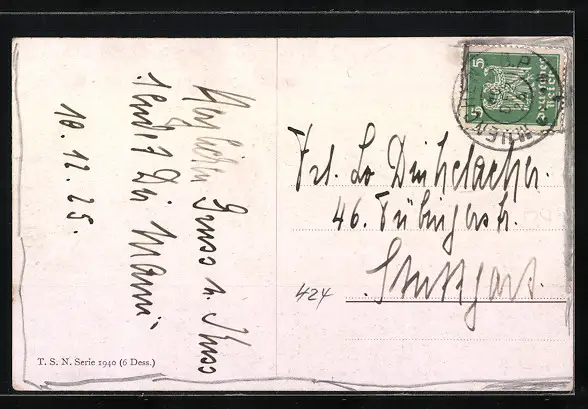 Herzlichen Gruss u. Kuss
sendet Dir Mami
10.12.25.
T. S. N. Serie 1940 (6 Dess.)
5 5
Deutsches Reich
Frl. Lo
46. Tübingerstr.
Stuttgart.
424